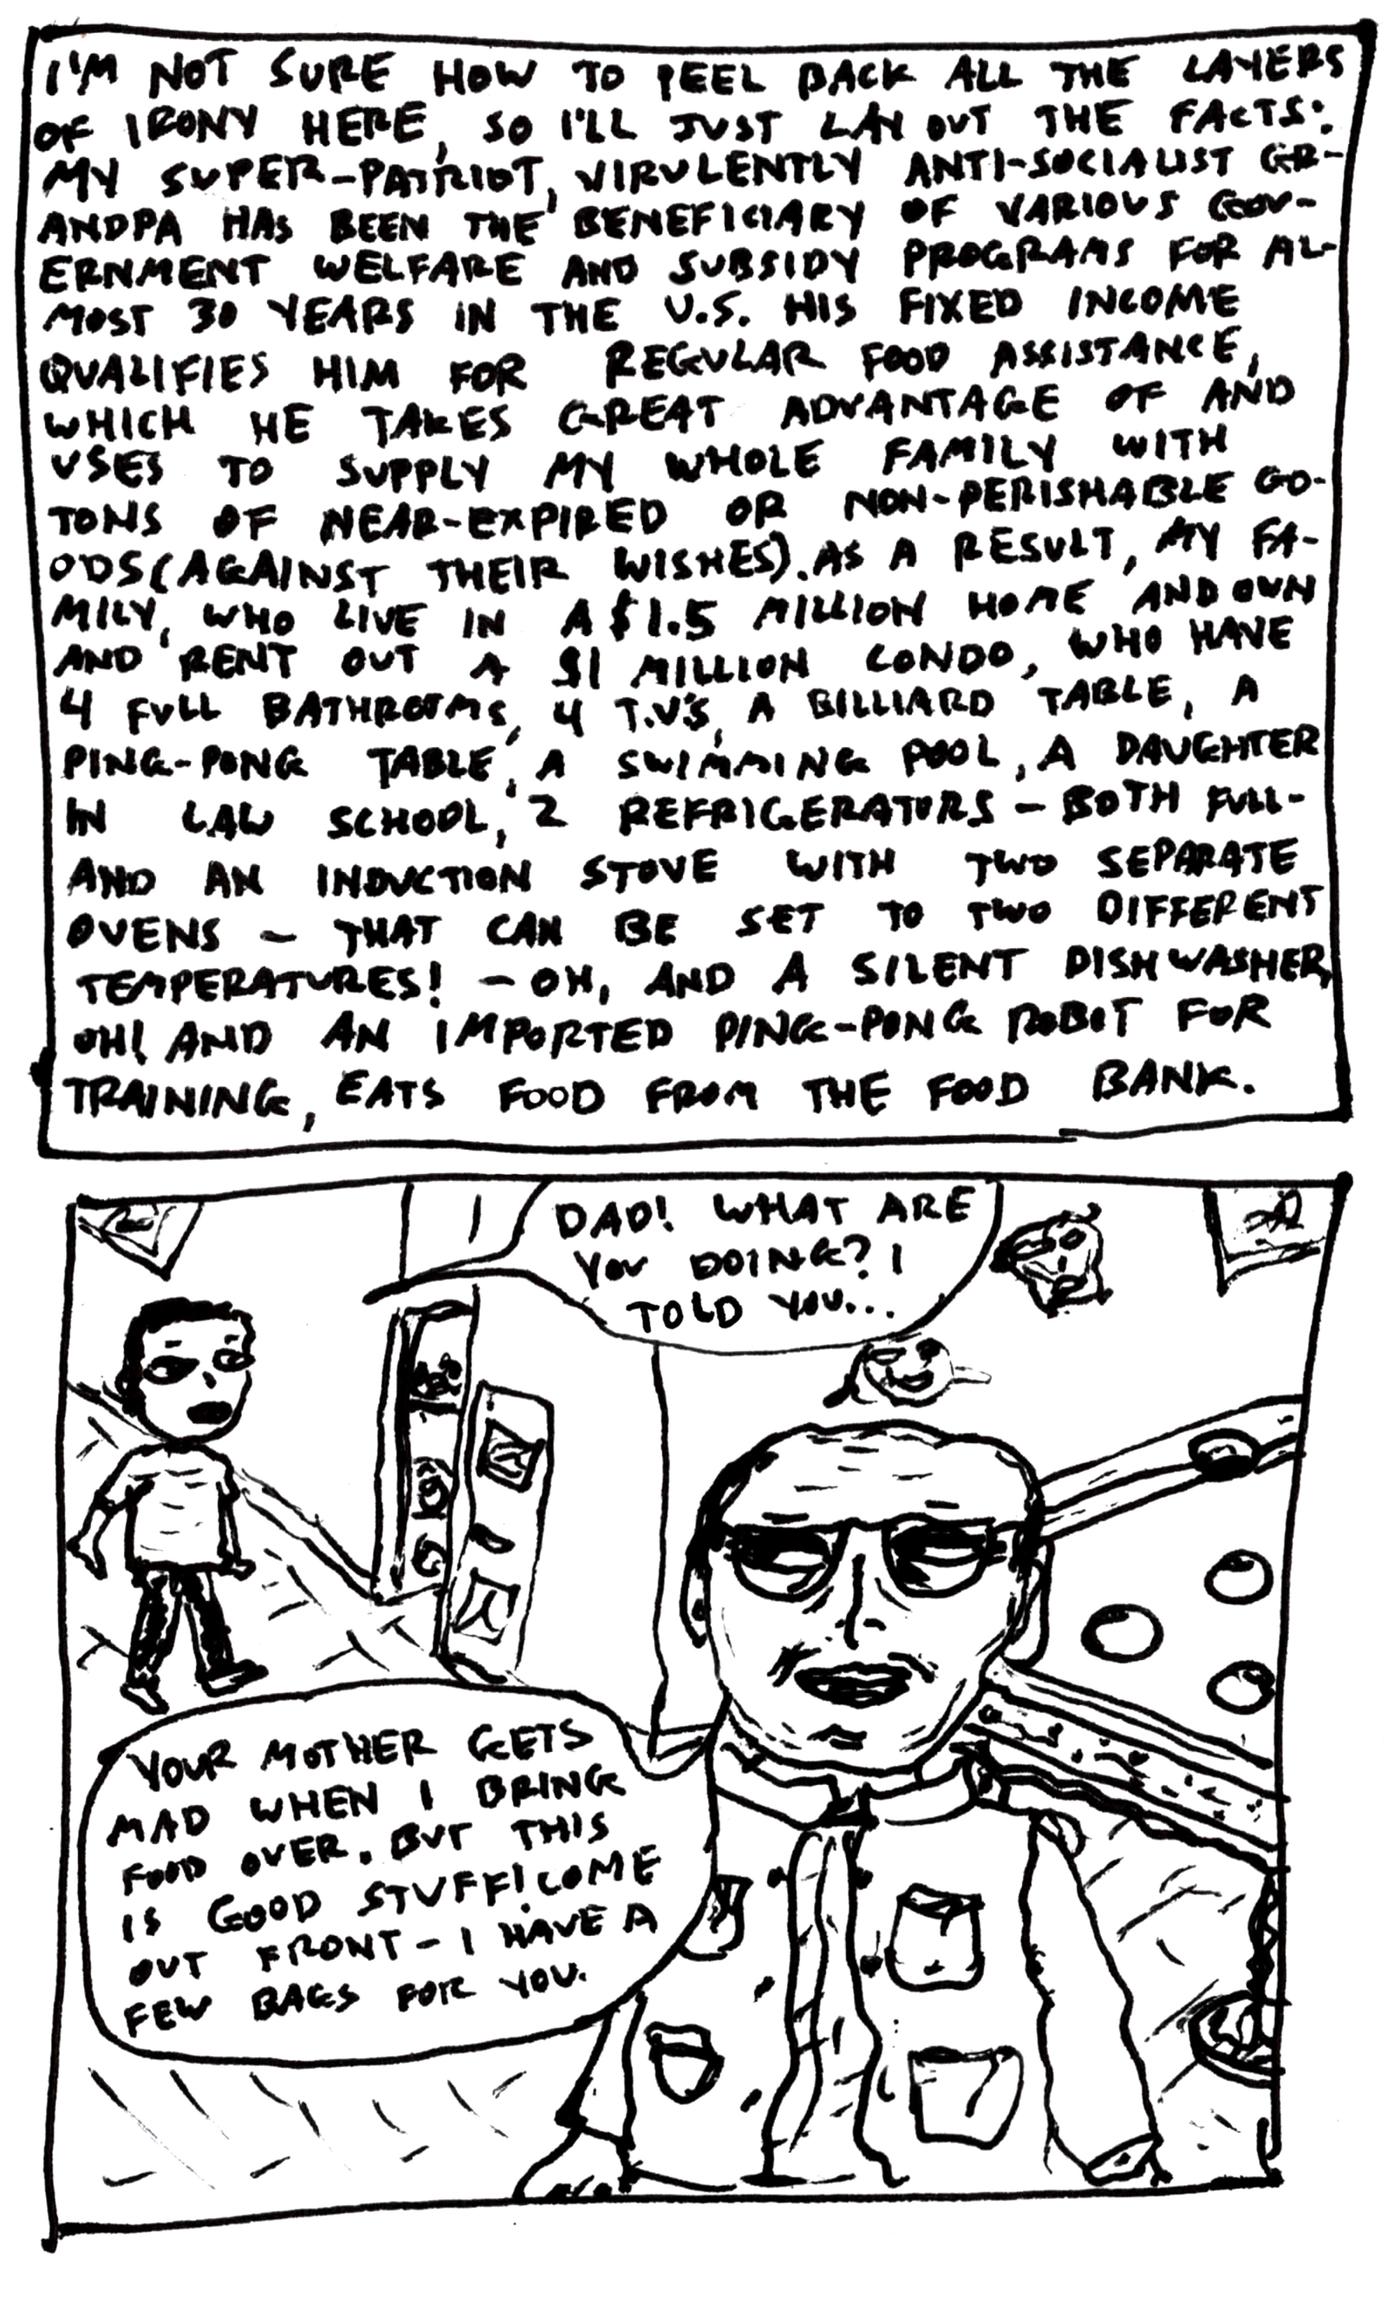 I'M NOT SURE HOW TO PEEL BACK ALL THE LAYERS
OF IRONY HERE, SO I'LL JUST LAY OUT THE FACTS:
MY SUPER-PATRIOT, VIRULENTLY ANTI-SOCIALIST GR-
ANDPA HAS BEEN THE BENEFICIARY OF VARIOUS GOV-
ERNMENT WELFARE AND SUBSIDY PROGRAMS FOR AL-
MOST 30 YEARS IN THE U.S. HIS FIXED INCOME
QUALIFIES HIM FOR REGULAR FOOD ASSISTANCE,
WHICH HE TAKES GREAT ADVANTAGE OF AND
USES TO SUPPLY MY WHOLE FAMILY WITH
TONS OF NEAR-EXPIRED OR NON-PERISHABLE GO-
ODS (AGAINST THEIR WISHES). AS A RESULT, MY FA-
MILY, WHO LIVE IN A $1.5 MILLION HOME AND OWN
AND RENT OUT A $1 MILLION CONDO, WHO HAVE
4 FULL BATHROOMS, 4 T.V.'S, A BILLIARD TABLE, A
PING-PONG TABLE, A SWIMMING POOL, A DAUGHTER
IN LAW SCHOOL, 2 REFRIGERATORS - BOTH FULL-
AND AN INDUCTION STOVE WITH TWO SEPARATE
OVENS - THAT CAN BE SET TO TWO DIFFERENT
TEMPERATURES! - OH, AND A SILENT DISHWASHER,
OH! AND AN IMPORTED PING-PONG ROBOT FOR
TRAINING, EATS FOOD FROM THE FOOD BANK.
DAD! WHAT ARE
YOU DOING? I
TOLD YOU...
YOUR MOTHER GETS
MAD WHEN I BRING
FOOD OVER. BUT THIS
IS GOOD STUFF! COME
OUT FRONT - I HAVE A
FEW BAGS FOR YOU.